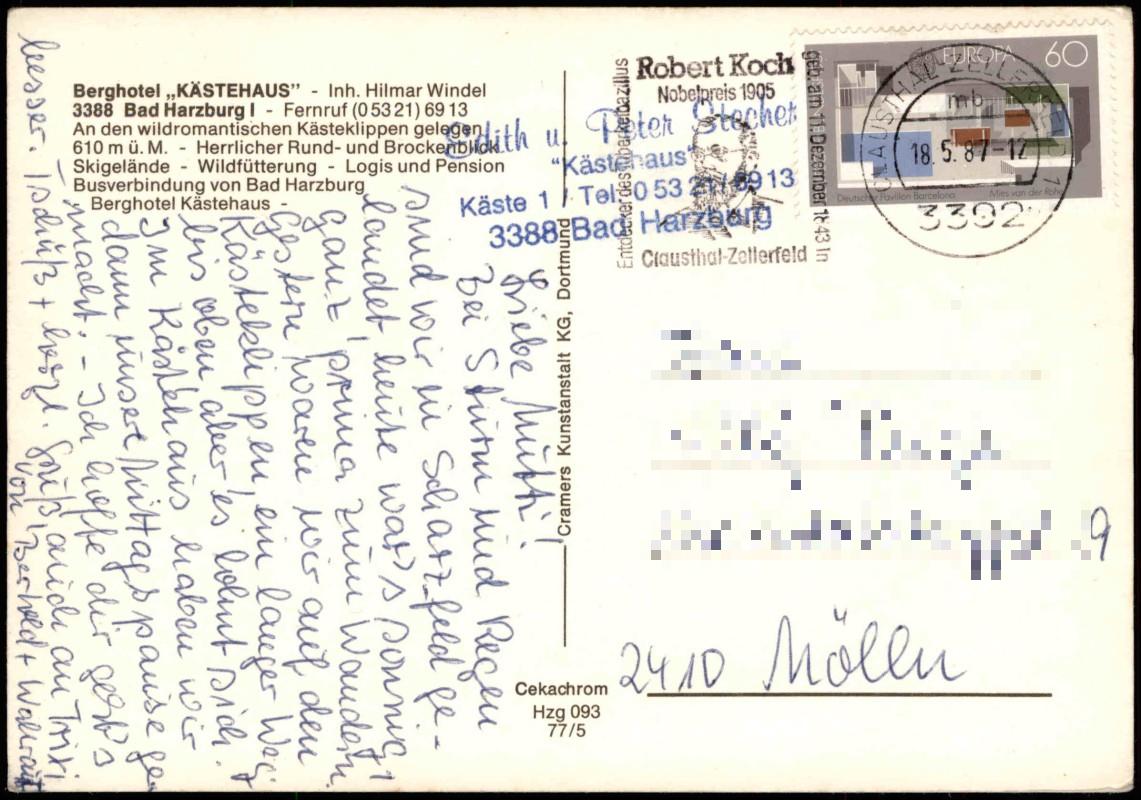 Berghotel „KÄSTEHAUS” - Inh. Hilmar Windel
3388 Bad Harzburg I - Fernruf (05321) 6913
An den wildromantischen Kästeklippen gelegen
610 m ü. M. - Herrlicher Rund- und Brockenblick
Skigelände - Wildfütterung - Logis und Pension
Busverbindung von Bad Harzburg
Berghotel Kästehaus -
Edith u. Peter Stecher
“Kästehaus”
Käste 1 / Tel. 0 53 21 / 69 13
3388 Bad Harzburg
Robert Koch
Nobelpreis 1905
Entdecker des Tuberkelbazillus
geb. am 11. Dezember 1843 in
Clausthal-Zellerfeld
EUROPA 60
Deutscher Pavillon Barcelona Mies van der Rohe
CLAUSTHAL-ZELLERFELD 1
mb
18.5.87-12
3392
Liebe Mutti!
Bei Sturm und Regen
sind wir in Scharzfeld ge-
landet, heute war's sonnig,
ganz prima zum Wandern.
Gestern waren wir auf den
Kästeklippen, ein langer Weg
bis oben aber es lohnt sich.
Im Kästehaus haben wir
dann unsere Mittagspause ge
macht. - Ich hoffe dir geht's
besser. Tschüß + herzl. Gruß, auch an Trixi
von Berthold + Waltraut
Cramers Kunstanstalt KG, Dortmund
9
2410 Mölln
Cekachrom
Hzg 093
77/5